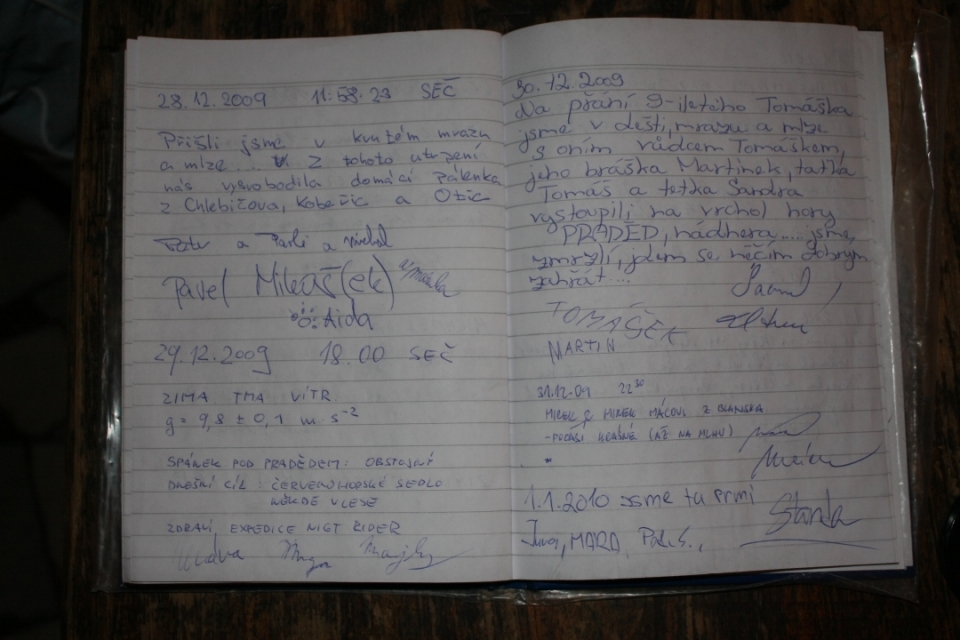 28.12.2009 11:58:23 SEČ
Přišli jsme v krutém mrazu
a mlze ... Z tohoto utrpení
nás vysvobodila domácí pálenka
z Chlebičova, Kobeřic a Oťic
a a Michal
Pavel Mikáš(ek)
Aida
29.12.2009 18.00 SEČ
ZIMA TMA VÍTR
g = 9,8 ± 0,1 m·s⁻²
SPÁNEK POD PRADĚDEM: OBSTOJNÝ
DNEŠNÍ CÍL: ČERVENOHORSKÉ SEDLO
NĚKDE V LESE
ZDRAVÍ EXPEDICE NIGT ŽIDER
30.12.2009
Na přání 9-iletého Tomáška
jsme v dešti, mrazu a mlze
s oním vůdcem Tomáškem,
jeho bráška Martinek, taťka
Tomáš a tetka Sandra
vystoupili na vrchol hory
PRADĚD, nádhera.... jsme
zmrzlí, jdem se něčím dobrým
zahřát....
TOMÁŠEK
MARTIN
31.12.09 22³⁰
MIREK & MIREK MÁCOVI Z BLANSKA
-POČASÍ KRÁSNÉ (AŽ NA MLHU)
1.1.2010 Jsme tu prvni
Standa
MARA,